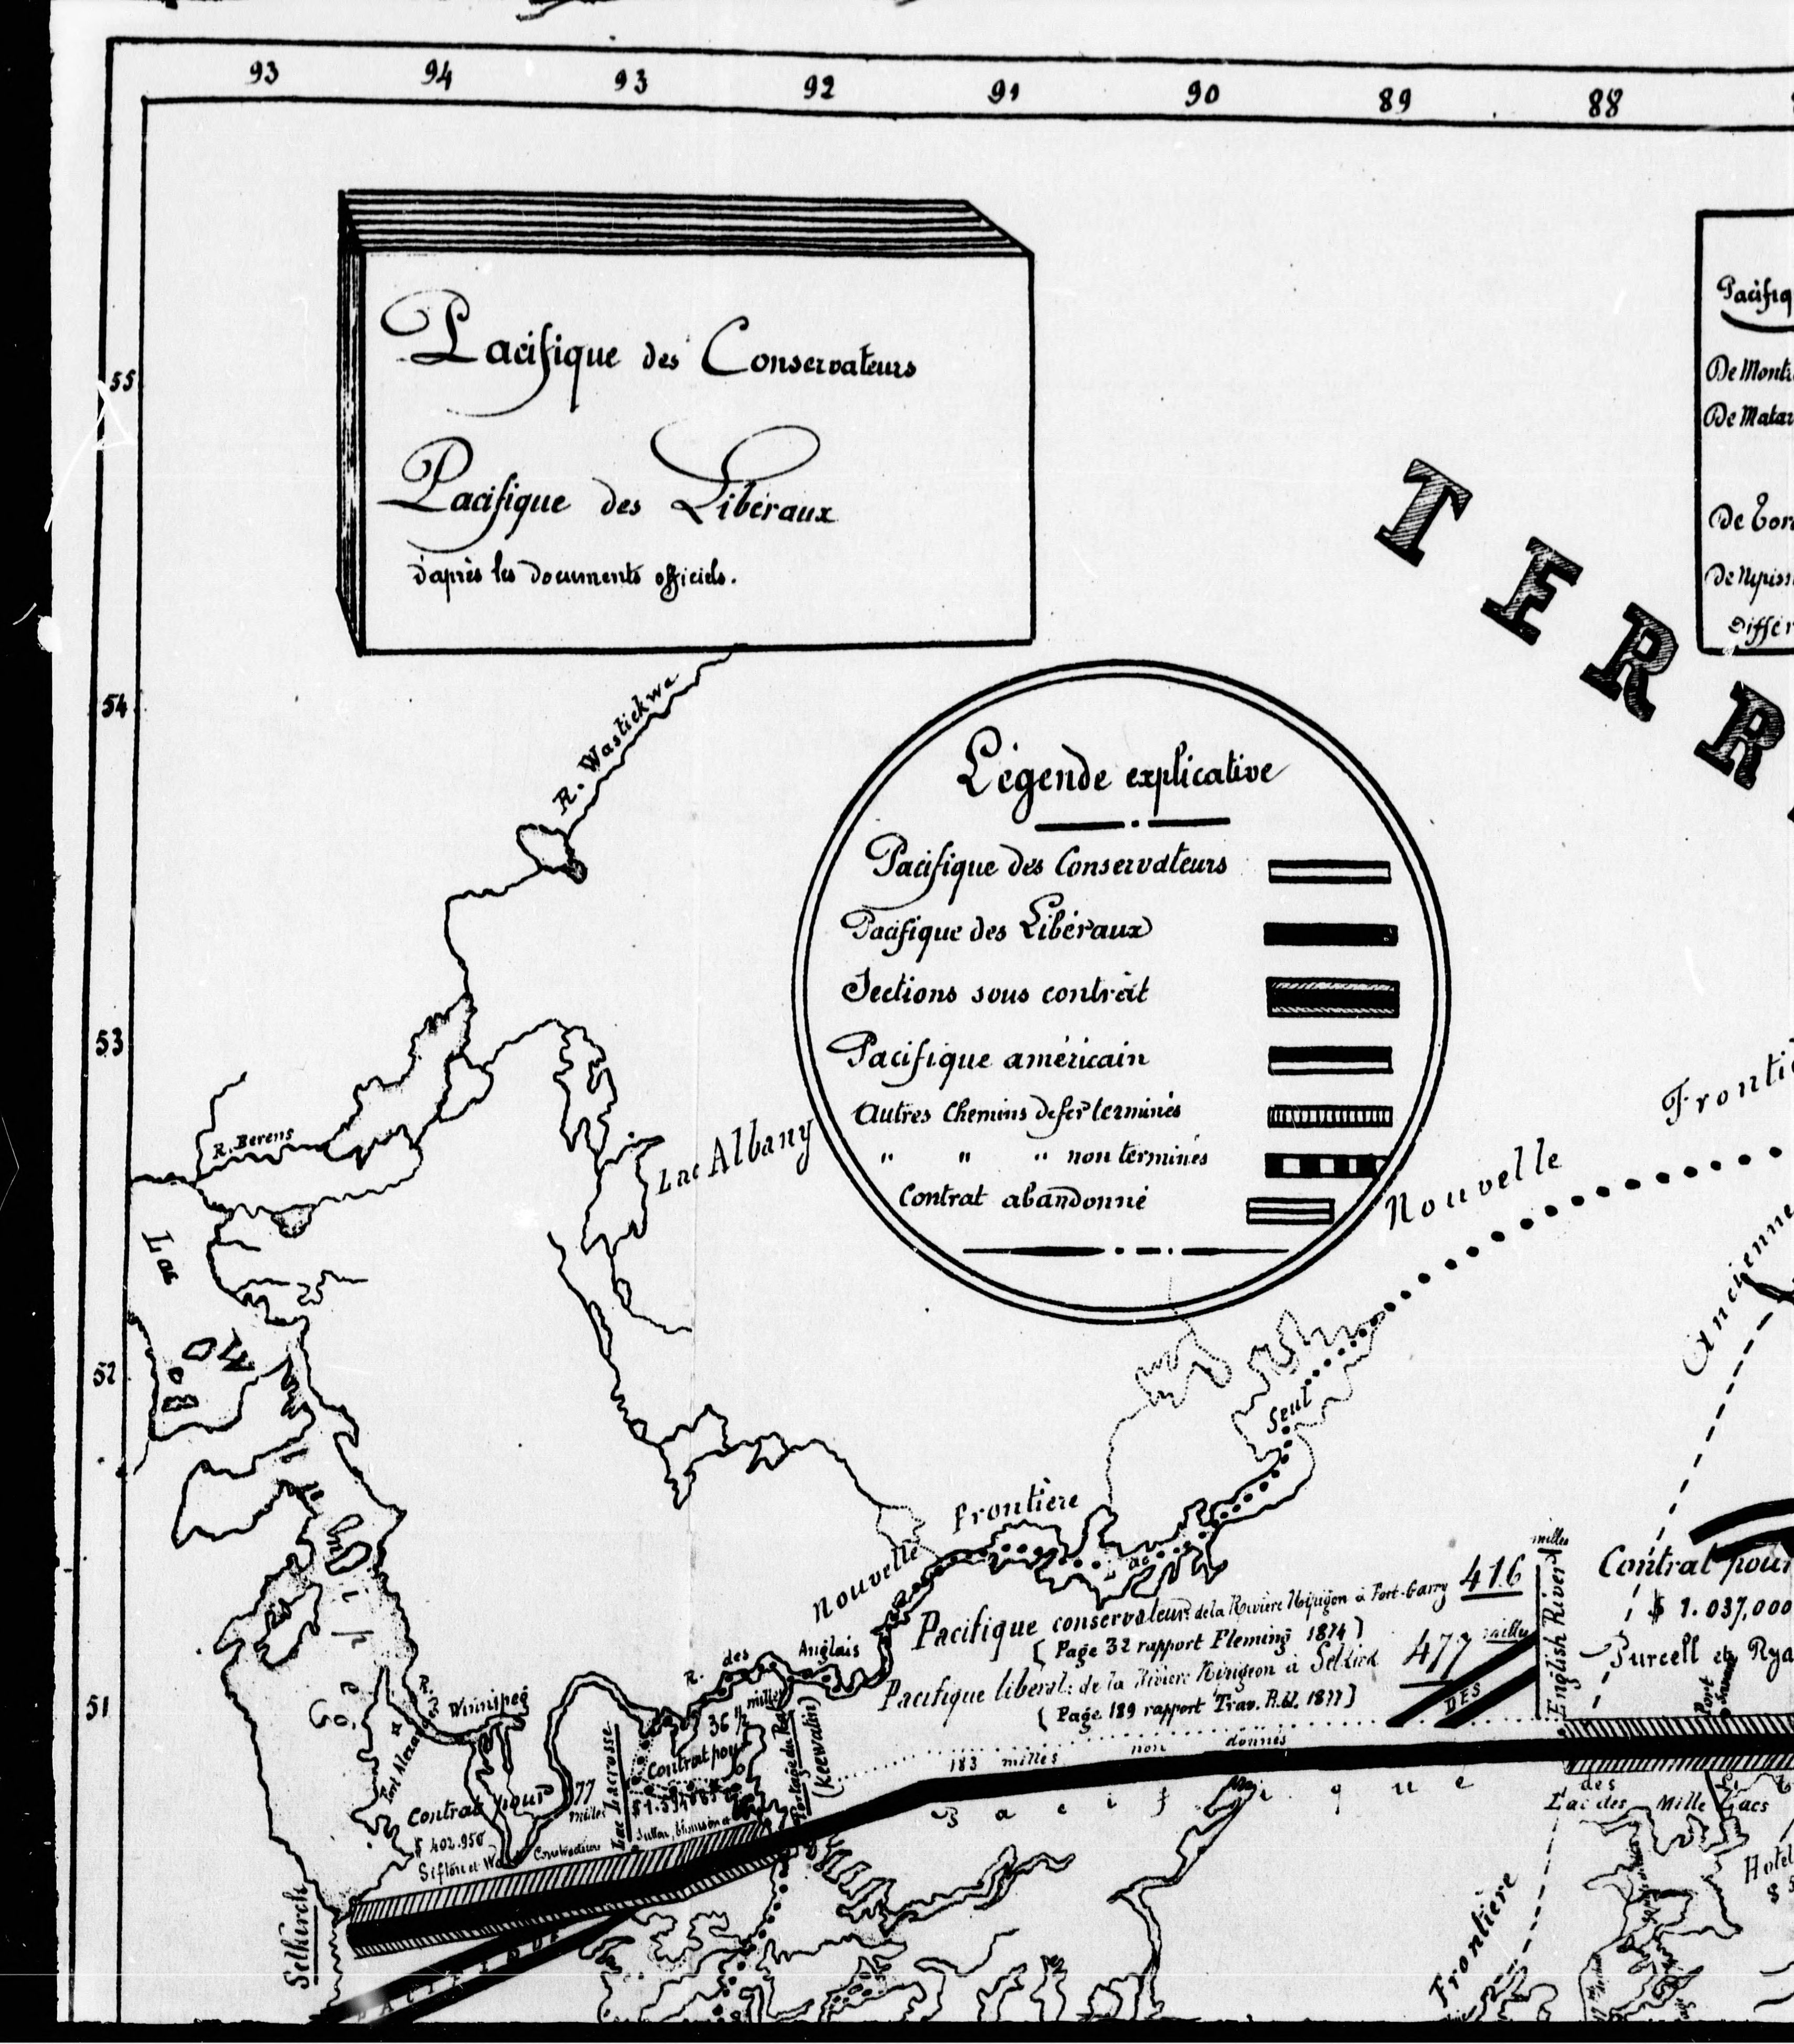 93 94 93 92 91 90 89 88
55
54
53
52
51
Pacifique des Conservateurs
Pacifique des Libéraux
d'après les documents officiels.
Pacifiq
De Montr
De Matar
De Toro
De Nipiss
Differ
TERR
R. Wastickwa
Légende explicative
Pacifique des Conservateurs
Pacifique des Libéraux
Sections sous contrat
Pacifique américain
Autres Chemins de fer terminés
" " " non terminés
Contrat abandonné
R. Berens
Lac Albany
Lac
Winipeg
Nouvelle
Frontiè
Ancienne
Seul
Lac
Nouvelle Frontière
R. des Anglais
R. Winipeg
Fort Alexander
Pacifique conservateur: de la Rivière Nipigon à Fort-Garry 416 milles
( Page 32 rapport Fleming 1874 )
Pacifique libéral: de la Rivière Nipigeon à Selkirk 477 milles
( Page 189 rapport Trav. P.bl. 1877 )
English River
Contrat pour
$ 1.037,000
Purcell et Rya
Port Savanne
DES
183 milles non donnés
Pacifique
Lac Lacrosse
36 ½ milles
Contrat pour
Portage du Rat
(Keewatin)
Contrat pour 77 milles
$ 402.950
Sifton et Constructeurs
Selkirck
PACIFIQUE
Lac des Mille Lacs
Hotel
Frontière